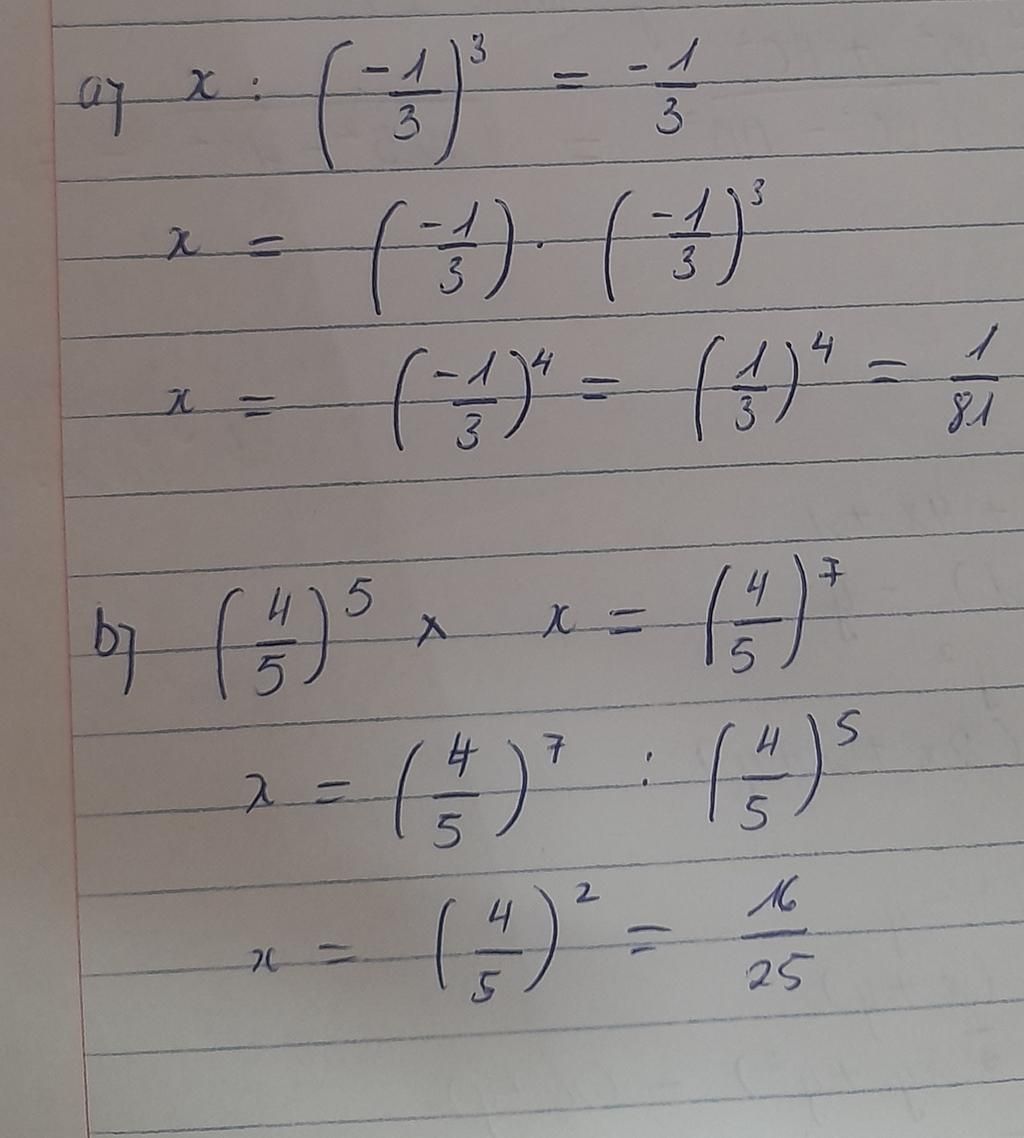 a) x : (-1/3)³ = -1/3
x = (-1/3) . (-1/3)³
x = (-1/3)⁴ = (1/3)⁴ = 1/81
b) (4/5)⁵ x x = (4/5)⁷
x = (4/5)⁷ : (4/5)⁵
x = (4/5)² = 16/25